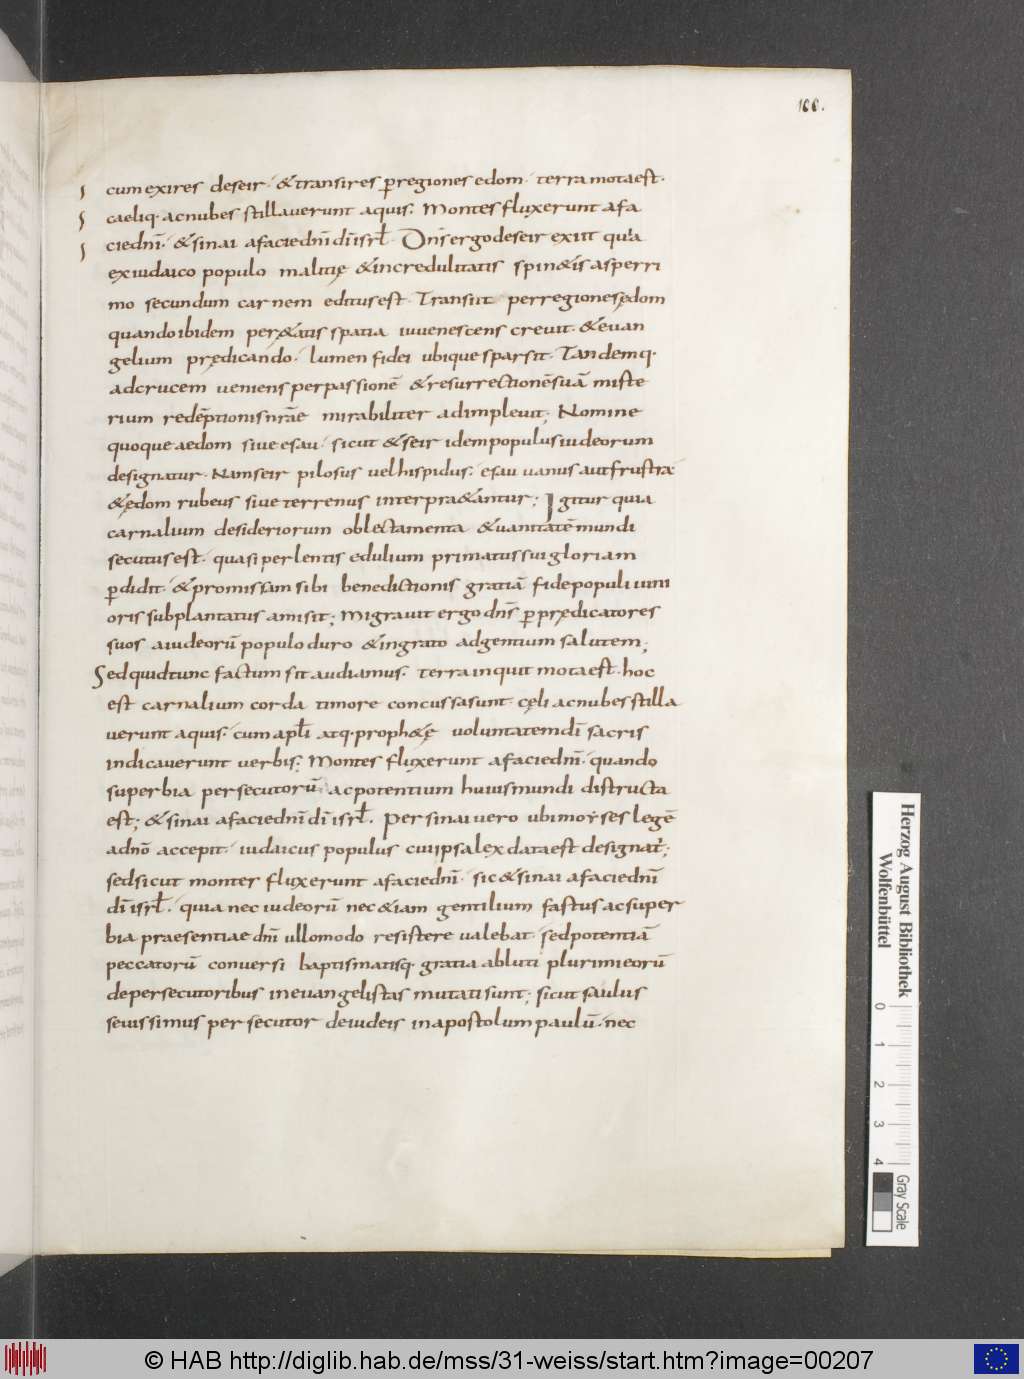 100.
cum exires deseir · & transires ꝑregiones edom · terra mota est ·
caeliq· ac nubes stillaverunt aquis · Montes fluxerunt afa
ciedn̄i · & sinai afaciedn̄i dī isrƚ · Dn̄s ergo deseir exiit quia
ex iudaico populo malitię & incredulitatis spin&is asperri
mo secundum carnem editus est · Transiit per regiones ędom
quando ibidem per&atis spatia iuvenescens crevit · & euan
gelium prędicando · lumen fidei ubique sparsit · Tandemq·
ad crucem veniens per passionē & resurrectionē suā miste
rium redēptionis nrāe mirabiliter adimplevit; Nomine
quoque aedom sive esau · sicut & seir idem populus iudeorum
designatur · Nam seir pilosus vel hispidus · esau vanus aut frustra
& ędom rubeus sive terrenus interpra&antur; Igitur quia
carnalium desideriorum oblectamenta & uanitatē mundi
secutus est · quasi per lentis edulium primatus sui gloriam
ꝑdidit · & promissam sibi benedictionis gratiā fide populi iuni
oris subplantatus amisit; Migravit ergo dn̄s ꝑ prędicatores
suos a iudeorū populo duro & ingrato ad gentium salutem;
Sed quid tunc factum sit audiamus · terra inquit mota est · hoc
est carnalium corda timore concussa sunt · cęli ac nubes stilla
verunt aquis · cum apƚi atq· proph&ę voluntatem dī sacris
indicaverunt verbis; Montes fluxerunt afaciedn̄i · quando
superbia persecutorū ac potentium huius mundi distructa
est; & sinai afaciedn̄i dī isrƚ · Per sinai vero ubi moyses legē
ad nō accepit · iudaicus populus cui ipsa lex data est designat̄;
sed sicut montes fluxerunt afaciedn̄i · sic & sinai afaciedn̄i
dī isrƚ · quia nec iudeorū nec &iam gentilium fastus ac super
bia praesentiae dn̄i ullomodo resistere valebat · sed potentiā
peccatorū conversi baptismatisq· gratia abluti plurimi eorū
de persecutoribus in evangelistas mutati sunt; sicut saulus
sevissimus persecutor de iudeis in apostolum paulū · nec
Herzog August Bibliothek
Wolfenbüttel
0 1 2 3 4
Gray Scale
© HAB http://diglib.hab.de/mss/31-weiss/start.htm?image=00207